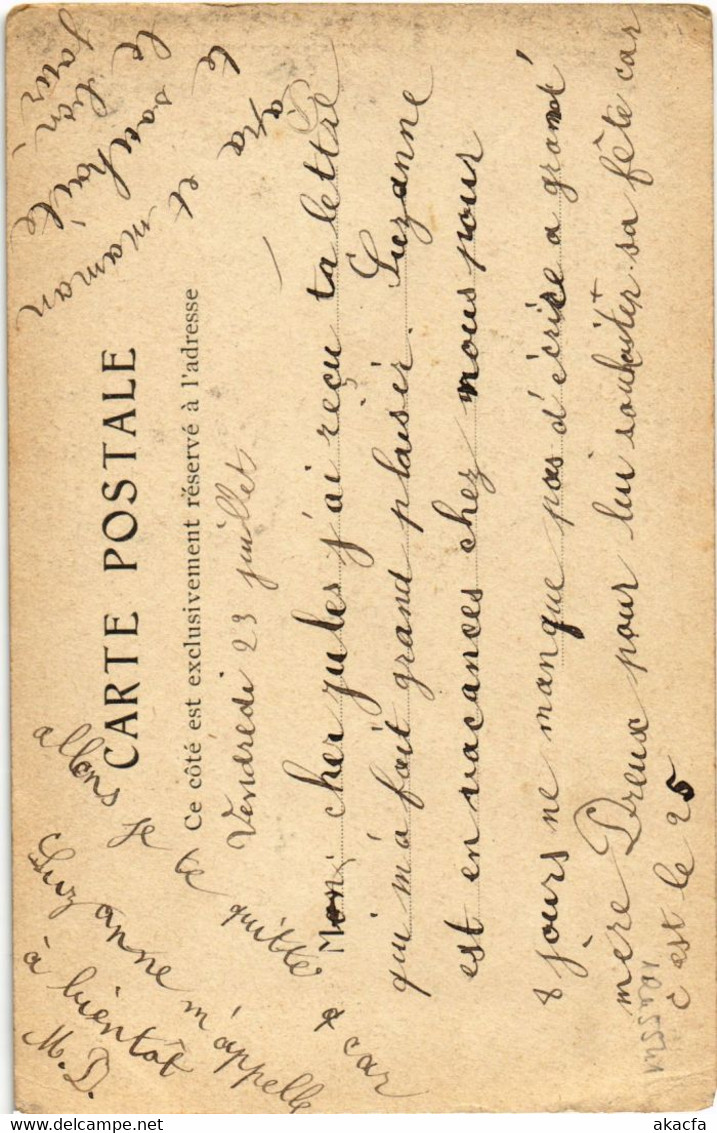 CARTE POSTALE
Ce côté est exclusivement réservé à l'adresse
Vendredi 23 juillet
Mon cher jules j'ai reçu ta lettre
qui m'a fait grand plaisir. Suzanne
est en vacances chez nous pour
8 jours ne manque pas d'écrire a grand
mère Dreux pour lui souhaiter sa fête car
c'est le 25
allons je te quitte car
Suzanne m'appelle
à bientôt
M. D.
et maman
te souhaite
le bon
jour
akacfa